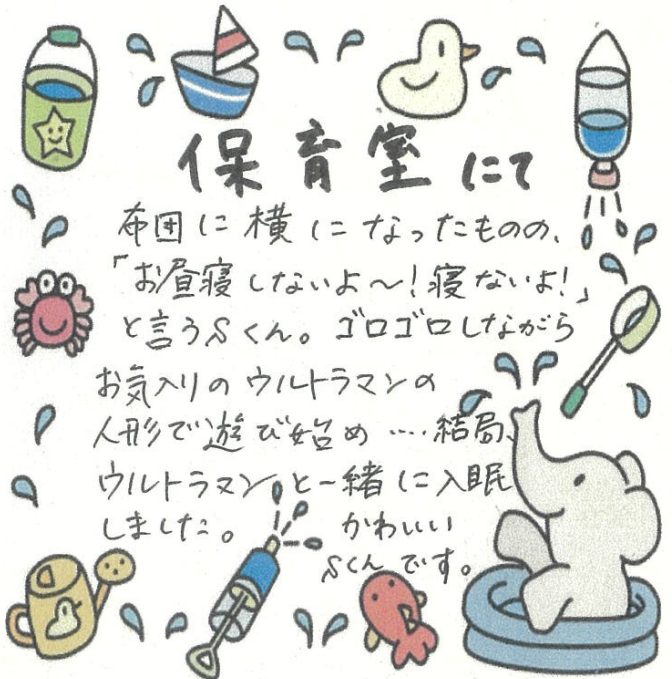 保育室にて
布団に横になったものの、
「お昼寝しないよ〜!寝ないよ!」
と言うSくん。ゴロゴロしながら
お気入りのウルトラマンの
人形で遊び始め‥‥結局、
ウルトラマンと一緒に入眠
しました。 かわいい
Sくんです。